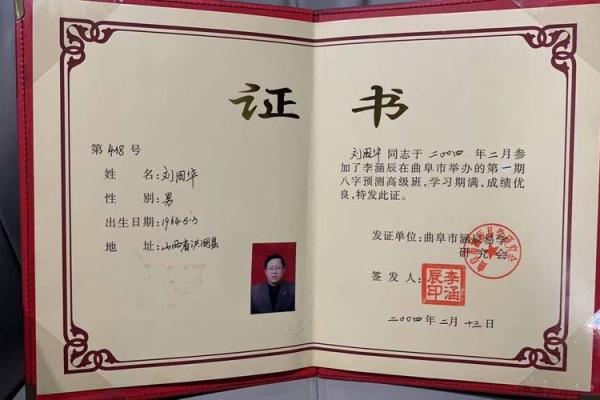 证书
第418号
姓名:刘国华
性别:男
出生日期:1964.5.3
地址:山西省洪洞县
刘国华同志于二〇〇四年二月参
加了李涵辰在曲阜市举办的第一期
八字预测高级班,学习期满,成绩优
良,特发此证。
发证单位:曲阜市涵辰易学
研究会
签发人:
李涵辰印
二〇〇四年二月十三日